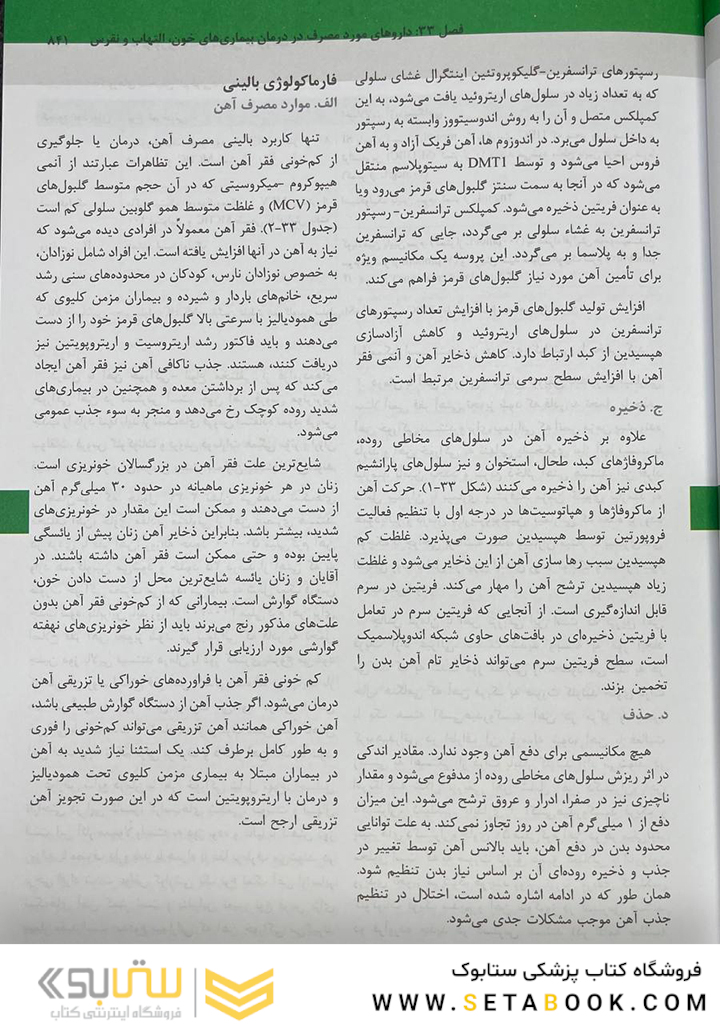 فصل ۳۳: داروهای مورد مصرف در درمان بیماری‌های خون، التهاب و نقرس ۸۴۱
رسپتورهای ترانسفرین-گلیکوپروتئین اینتگرال غشای سلولی
که به تعداد زیاد در سلول‌های اریتروئید یافت می‌شود، به این
کمپلکس متصل و آن را به روش اندوسیتوز وابسته به رسپتور
به داخل سلول می‌برد. در اندوزوم ها، آهن فریک آزاد و به آهن
فروس احیا می‌شود و توسط DMT1 به سیتوپلاسم منتقل
می‌شود که در آنجا به سمت سنتز گلبول‌های قرمز می‌رود ویا
به عنوان فریتین ذخیره می‌شود. کمپلکس ترانسفرین- رسپتور
ترانسفرین به غشاء سلولی بر می‌گردد، جایی که ترانسفرین
جدا و به پلاسما بر می‌گردد. این پروسه یک مکانیسم ویژه
برای تأمین آهن مورد نیاز گلبول‌های قرمز فراهم می‌کند.
افزایش تولید گلبول‌های قرمز با افزایش تعداد رسپتورهای
ترانسفرین در سلول‌های اریتروئید و کاهش آزادسازی
هپسیدین از کبد ارتباط دارد. کاهش ذخایر آهن و آنمی فقر
آهن با افزایش سطح سرمی ترانسفرین مرتبط است.
ج. ذخیره
علاوه بر ذخیره آهن در سلول‌های مخاطی روده،
ماکروفاژهای کبد، طحال، استخوان و نیز سلول‌های پارانشیم
کبدی نیز آهن را ذخیره می‌کنند (شکل ۳۳-۱). حرکت آهن
از ماکروفاژها و هپاتوسیت‌ها در درجه اول با تنظیم فعالیت
فروپورتین توسط هپسیدین صورت می‌پذیرد. غلظت کم
هپسیدین سبب رها سازی آهن از این ذخایر می‌شود و غلظت
زیاد هپسیدین ترشح آهن را مهار می‌کند. فریتین در سرم
قابل اندازه‌گیری است. از آنجایی که فریتین سرم در تعامل
با فریتین ذخیره‌ای در بافت‌های حاوی شبکه اندوپلاسمیک
است، سطح فریتین سرم می‌تواند ذخایر تام آهن بدن را
تخمین بزند.
د. حذف
هیچ مکانیسمی برای دفع آهن وجود ندارد. مقادیر اندکی
در اثر ریزش سلول‌های مخاطی روده از مدفوع می‌شود و مقدار
ناچیزی نیز در صفرا، ادرار و عروق ترشح می‌شود. این میزان
دفع از ۱ میلی‌گرم آهن در روز تجاوز نمی‌کند. به علت توانایی
محدود بدن در دفع آهن، باید بالانس آهن توسط تغییر در
جذب و ذخیره روده‌ای آن بر اساس نیاز بدن تنظیم شود.
همان طور که در ادامه اشاره شده است، اختلال در تنظیم
جذب آهن موجب مشکلات جدی می‌شود.
فارماکولوژی بالینی
الف. موارد مصرف آهن
تنها کاربرد بالینی مصرف آهن، درمان یا جلوگیری
از کم‌خونی فقر آهن است. این تظاهرات عبارتند از آنمی
هیپوکروم -میکروسیتی که در آن حجم متوسط گلبول‌های
قرمز (MCV) و غلظت متوسط همو گلوبین سلولی کم است
(جدول ۳۳-۲). فقر آهن معمولاً در افرادی دیده می‌شود که
نیاز به آهن در آنها افزایش یافته است. این افراد شامل نوزادان،
به خصوص نوزادان نارس، کودکان در محدوده‌های سنی رشد
سریع، خانم‌های باردار و شیرده و بیماران مزمن کلیوی که
طی همودیالیز با سرعتی بالا گلبول‌های قرمز خود را از دست
می‌دهند و باید فاکتور رشد اریتروسیت و اریتروپویتین نیز
دریافت کنند، هستند. جذب ناکافی آهن نیز فقر آهن ایجاد
می‌کند که پس از برداشتن معده و همچنین در بیماری‌های
شدید روده کوچک رخ می‌دهد و منجر به سوء جذب عمومی
می‌شود.
شایع‌ترین علت فقر آهن در بزرگسالان خونریزی است.
زنان در هر خونریزی ماهیانه در حدود ۳۰ میلی‌گرم آهن
از دست می‌دهند و ممکن است این مقدار در خونریزی‌های
شدید، بیشتر باشد. بنابراین ذخایر آهن زنان پیش از یائسگی
پایین بوده و حتی ممکن است فقر آهن داشته باشند. در
آقایان و زنان یائسه شایع‌ترین محل از دست دادن خون،
دستگاه گوارش است. بیمارانی که از کم‌خونی فقر آهن بدون
علت‌های مذکور رنج می‌برند باید از نظر خونریزی‌های نهفته
گوارشی مورد ارزیابی قرار گیرند.
کم خونی فقر آهن با فراورده‌های خوراکی یا تزریقی آهن
درمان می‌شود. اگر جذب آهن از دستگاه گوارش طبیعی باشد،
آهن خوراکی همانند آهن تزریقی می‌تواند کم‌خونی را فوری
و به طور کامل برطرف کند. یک استثنا نیاز شدید به آهن
در بیماران مبتلا به بیماری مزمن کلیوی تحت همودیالیز
و درمان با اریتروپویتین است که در این صورت تجویز آهن
تزریقی ارجح است.
فروشگاه کتاب پزشکی ستابوک
WWW.SETABOOK.COM
ستابوک
فروشگاه اینترنتی کتاب